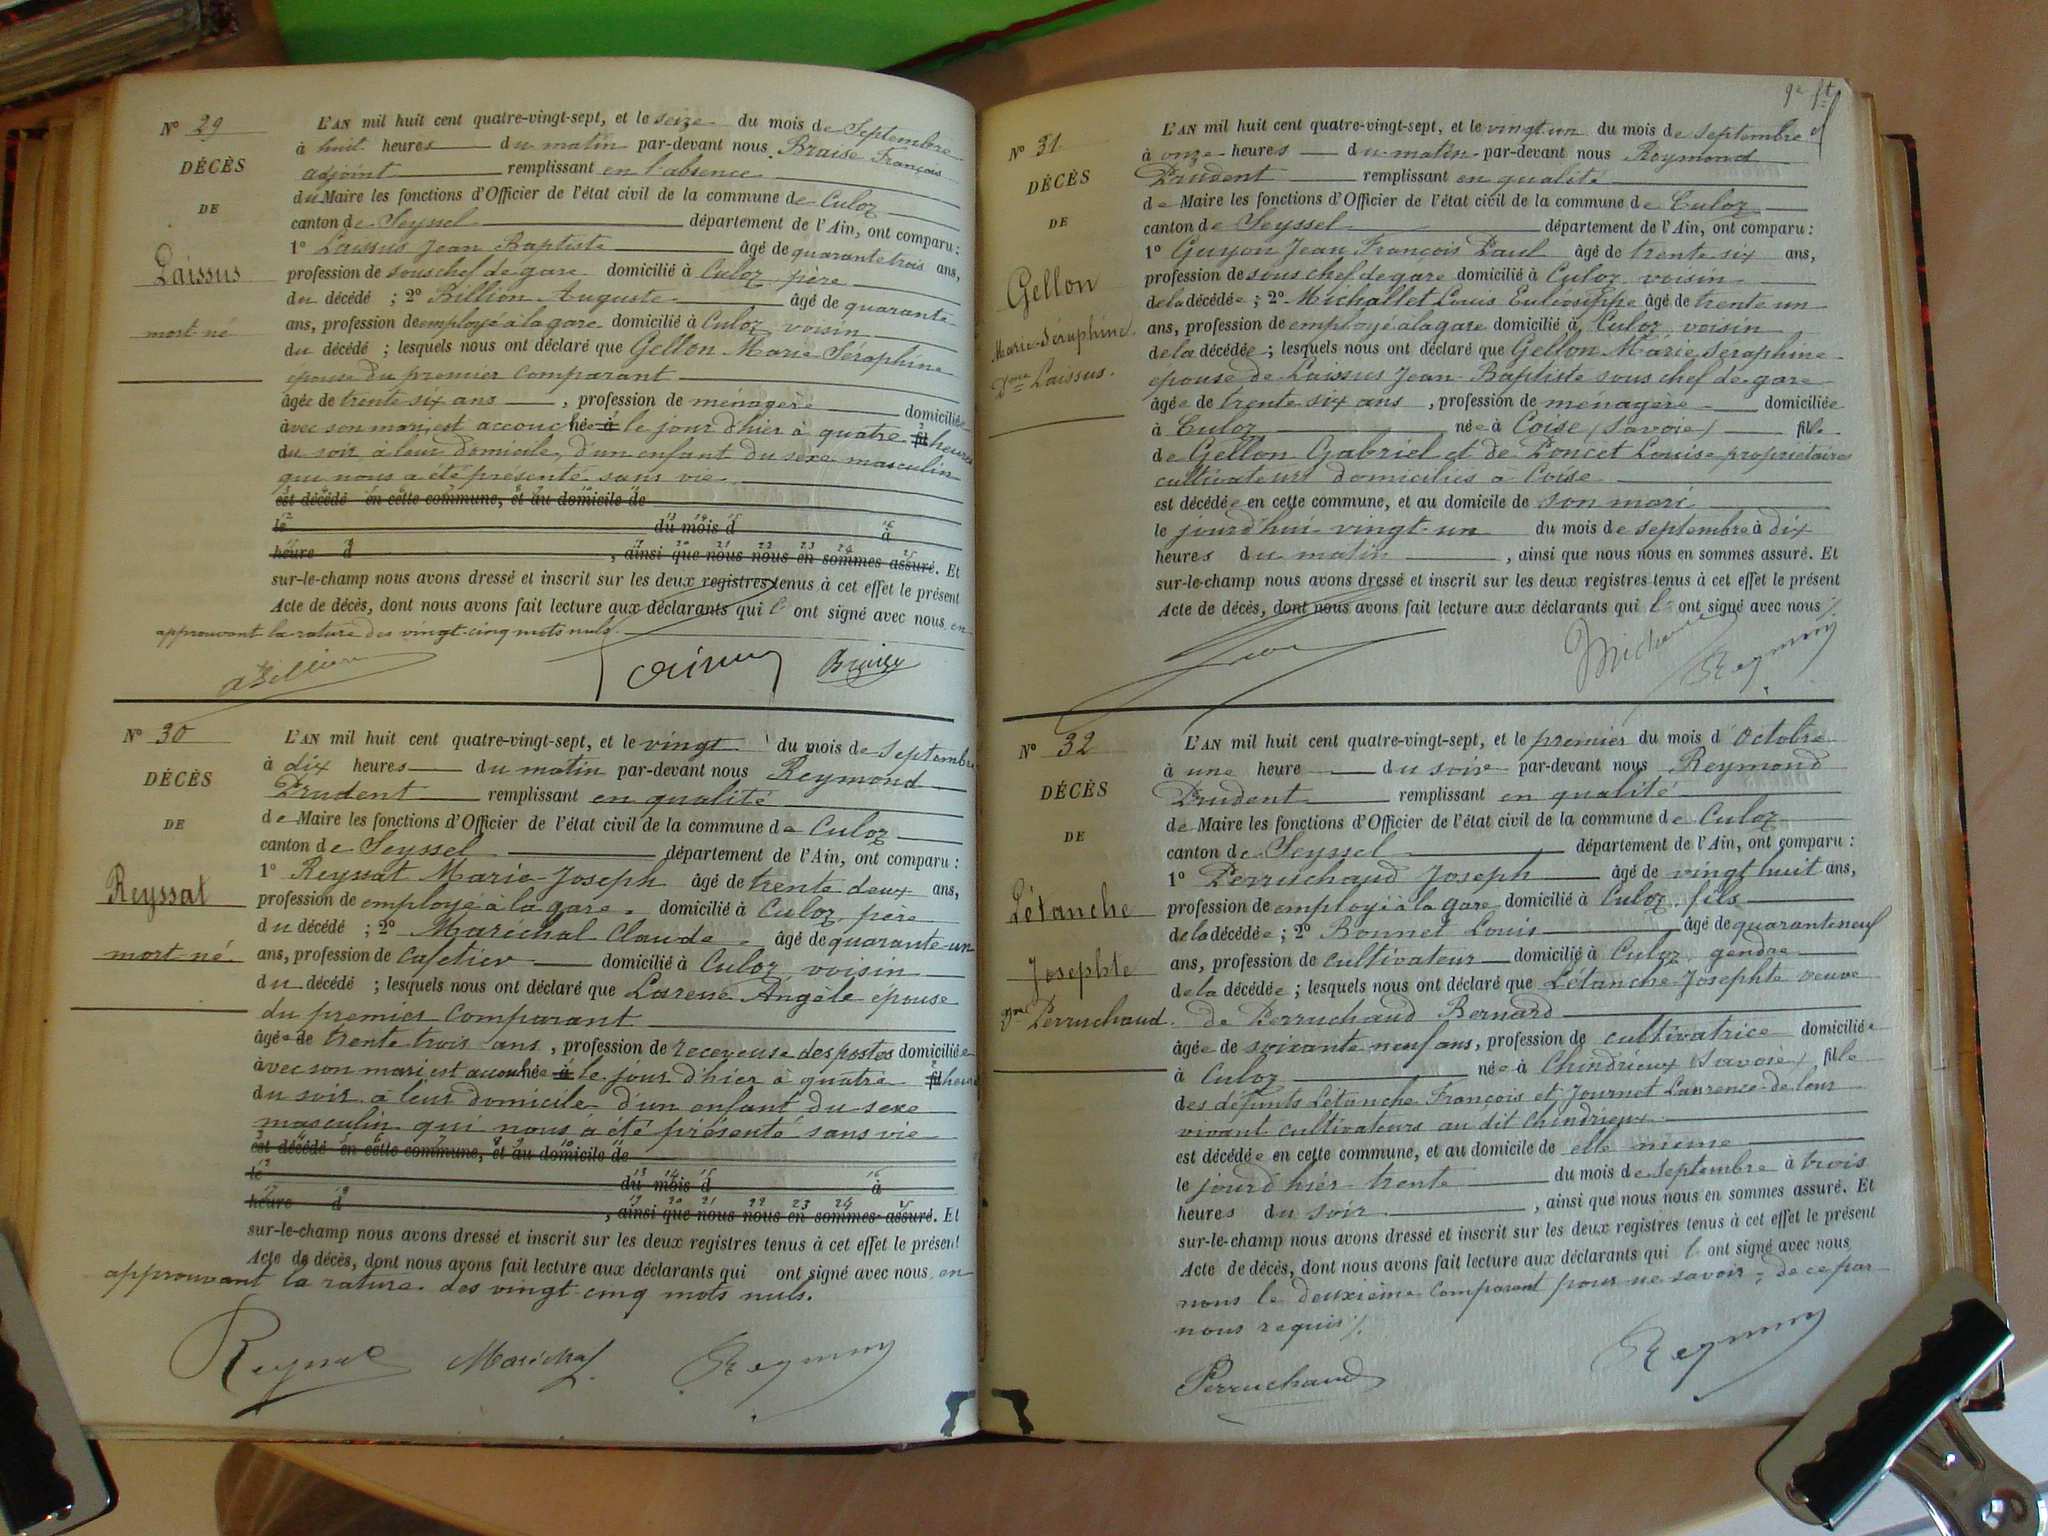 Nº 29
DÉCÈS
DE
Laissus
mort né
L'AN mil huit cent quatre-vingt-sept, et le seize du mois de Septembre
à huit heures du matin par-devant nous Braise François
adjoint remplissant en l'absence
du Maire les fonctions d'Officier de l'état civil de la commune de Culoz
canton de Seyssel département de l'Ain, ont comparu :
1º Laissus Jean Baptiste âgé de quarante trois ans,
profession de sous chef de gare domicilié à Culoz, père
du décédé ; 2º Billion Auguste âgé de quarante
ans, profession de employé à la gare domicilié à Culoz, voisin
du décédé ; lesquels nous ont déclaré que Gellon Marie Séraphine
épouse du premier comparant
âgée de trente six ans, profession de ménagère domiciliée
avec son mari, est accouchée à le jour d'hier à quatre fil heures
du soir à leur domicile, d'un enfant du sexe masculin
qui nous a été présenté sans vie
est décédé en cette commune, et au domicile de
le du mois d à
heure d , ainsi que nous nous en sommes assuré. Et
sur-le-champ nous avons dressé et inscrit sur les deux registres tenus à cet effet le présent
Acte de décès, dont nous avons fait lecture aux déclarants qui l' ont signé avec nous, en
approuvant la rature des vingt-cinq mots nuls.
aBillion Braise
Nº 30
DÉCÈS
DE
Reyssat
mort né
L'AN mil huit cent quatre-vingt-sept, et le vingt du mois de septembre
à dix heures du matin par-devant nous Reymond
Prudent remplissant en qualité
de Maire les fonctions d'Officier de l'état civil de la commune de Culoz
canton de Seyssel département de l'Ain, ont comparu :
1º Reyssat Marie-Joseph âgé de trente deux ans,
profession de employé à la gare domicilié à Culoz, père
du décédé ; 2º Maréchal Claude âgé de quarante-un
ans, profession de cafetier domicilié à Culoz, voisin
du décédé ; lesquels nous ont déclaré que Angèle épouse
du premier comparant
âgée de trente trois ans, profession de receveuse des postes domiciliée
avec son mari, est accouchée à le jour d'hier à quatre fil heures
du soir à leur domicile d'un enfant du sexe
masculin qui nous a été présenté sans vie
est décédé en cette commune, et au domicile de
le du mois d à
heure d , ainsi que nous nous en sommes assuré. Et
sur-le-champ nous avons dressé et inscrit sur les deux registres tenus à cet effet le présent
Acte de décès, dont nous avons fait lecture aux déclarants qui ont signé avec nous, en
approuvant la rature des vingt-cinq mots nuls.
Maréchal Reymond
9e ft
Nº 31
DÉCÈS
DE
Gellon
Marie-Séraphine
Laissus.
L'AN mil huit cent quatre-vingt-sept, et le vingt-un du mois de septembre
à onze heures du matin par-devant nous Reymond
Prudent remplissant en qualité
de Maire les fonctions d'Officier de l'état civil de la commune de Culoz
canton de Seyssel département de l'Ain, ont comparu :
1º Guyon Jean François Paul âgé de trente six ans,
profession de sous chef de gare domicilié à Culoz, voisin
de la décédée ; 2º Michallet Louis âgé de trente un
ans, profession de employé à la gare domicilié à Culoz, voisin
de la décédée ; lesquels nous ont déclaré que Gellon Marie Séraphine
épouse de Laissus Jean-Baptiste sous chef de gare
âgée de trente six ans, profession de ménagère domiciliée
à Culoz née à Coise (Savoie) fille
de Gellon Gabriel et de Poncet Louise propriétaires
cultivateurs domiciliés à Coise
est décédée en cette commune, et au domicile de son mari
le jourd'hui vingt-un du mois de septembre à dix
heures du matin , ainsi que nous nous en sommes assuré. Et
sur-le-champ nous avons dressé et inscrit sur les deux registres tenus à cet effet le présent
Acte de décès, dont nous avons fait lecture aux déclarants qui l' ont signé avec nous
Reymond
Nº 32
DÉCÈS
DE
Létanche
Josephte
Perruchaud
L'AN mil huit cent quatre-vingt-sept, et le premier du mois d'Octobre
à une heure du soir par-devant nous Reymond
Prudent remplissant en qualité
de Maire les fonctions d'Officier de l'état civil de la commune de Culoz
canton de Seyssel département de l'Ain, ont comparu :
1º Perruchaud Joseph âgé de vingt huit ans,
profession de employé à la gare domicilié à Culoz, fils
de la décédée ; 2º Bonnet Louis âgé de quarante neuf
ans, profession de cultivateur domicilié à Culoz, gendre
de la décédée ; lesquels nous ont déclaré que Létanche Josephte veuve
de Perruchaud Bernard
âgée de soixante neuf ans, profession de cultivatrice domiciliée
à Culoz née à Chindrieux (Savoie) fille
des défunts Létanche François et Journet Laurence de leur
vivant cultivateurs au dit Chindrieux
est décédée en cette commune, et au domicile de elle même
le jourd'hier trente du mois de septembre à trois
heures du soir , ainsi que nous nous en sommes assuré. Et
sur-le-champ nous avons dressé et inscrit sur les deux registres tenus à cet effet le présent
Acte de décès, dont nous avons fait lecture aux déclarants qui l' ont signé avec nous
nous le deuxième comparant pour ne savoir, de ce par
nous requis
Perruchaud Reymond